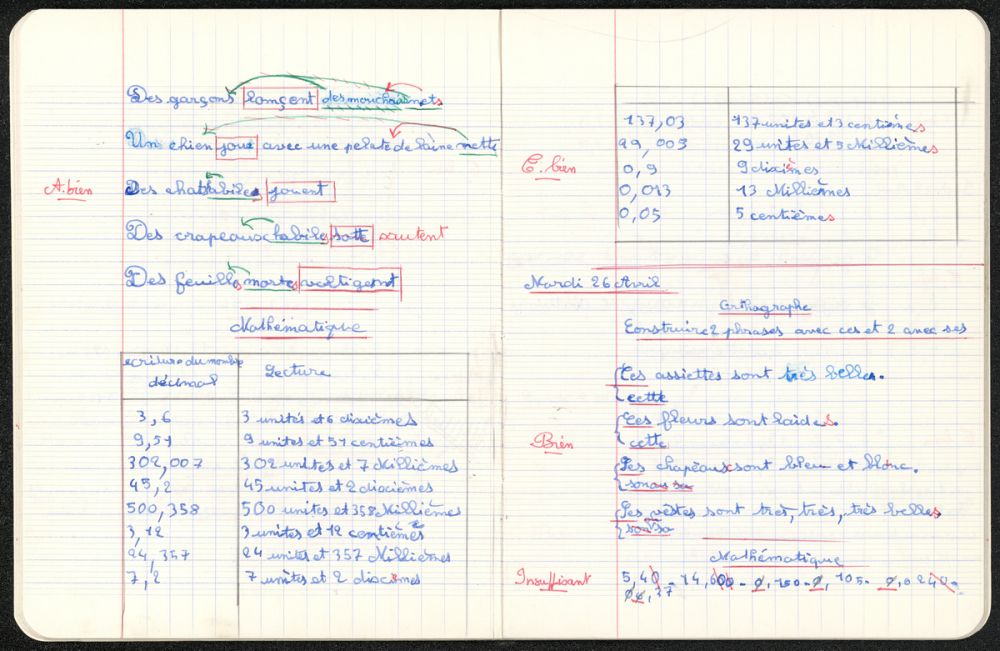 Des garçons lançent des mouchoirs nets
Un chien joue avec une pelote de laine nette
A. bien
Des chats habiles jouent
Des crapeaux habiles saute sautent
Des feuilles mortes voltigent
Mathématique
ecriture du nombre décimal Lecture
3,6 3 unités et 6 dixièmes
9,51 9 unites et 51 centièmes
302,007 302 unites et 7 Millièmes
45,2 45 unites et 2 dioxièmes
500,358 500 unites et 358 Millièmes
3,12 3 unites et 12 centièmes
24,357 24 unites et 357 Millièmes
7,2 7 unites et 2 dioxièmes
137,03 137 unites et 3 centièmes
29,005 29 unites et 5 Millièmes
C. bien
0,9 9 dixièmes
0,013 13 Millièmes
0,05 5 centièmes
Mardi 26 Avril
Orthographe
Construire 2 phrases avec ces et 2 avec ses
Ces assiettes sont très belles.
cette
Ces fleurs sont laides.
Bien
cette
Ses chapeaux sont bleu et blanc.
son ou sa
Ses vestes sont très, très, très belles
son sa
Mathématique
Insuffisant
5,40 - 14,600 - 0,150 - 0,105 - 0,0240 -